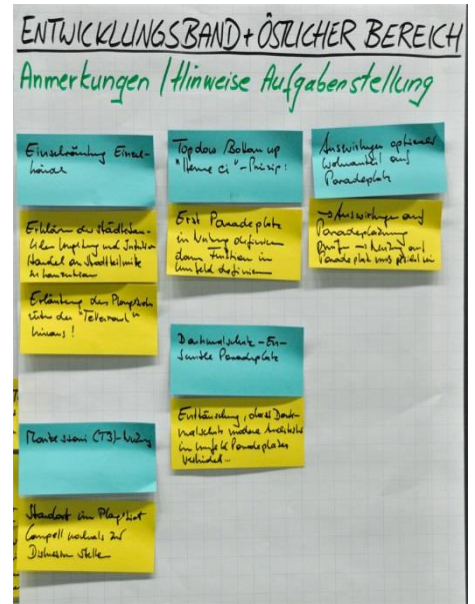 ENTWICKLUNGSBAND + ÖSTLICHER BEREICH
Anmerkungen / Hinweise Aufgabenstellung
Einschränkung Einzel-
Erklären der städtebau-
lichen Umgebung und
Handel an Stadtteilmitte
zu konzentrieren
Erläuterung des
über den "Tellerrand"
hinaus!
Montessori (T3)-Nutzung
Standort im Plangebiet
Campell nochmals zur
Diskussion stellen
Topdown Bottom up
Prinzip!
Erst Paradeplatz
in Nutzung definieren
dann Funktion im
Umfeld definieren
Denkmalschutz - En-
semble Paradeplatz
Enttäuschung, dass Denk-
malschutz moderne Architektur
im Umfeld Paradeplatzes
verhindert...
Auswirkungen optionaler
Wohnanteil auf
Paradeplatz
→ Auswirkungen auf
Paradeplatznutzung
prüfen → Nutzung auf
Paradeplatz muss